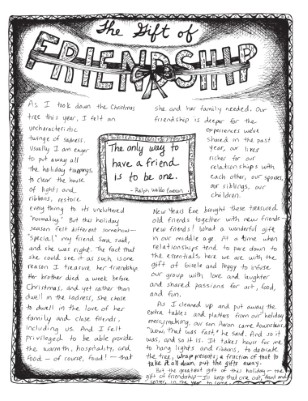 The Gift of
FRIENDSHIP
As I took down the Christmas
tree this year, I felt an
uncharacteristic
twinge of sadness.
Usually I am eager
to put away all
the holiday trappings,
to clear the house
of lights and
ribbons, restore
everything to its uncluttered
"normalcy." But this holiday
season felt different somehow—
"Special," my friend Sara said,
and she was right. The fact that
she could see it as such is one
reason I treasure her friendship.
Her brother died a week before
Christmas, and yet rather than
dwell in the sadness, she chose
to dwell in the love of her
family and close friends,
including us. And I felt
privileged to be able provide
the warmth, hospitality, and
food — of course, food! — that
The only way to
have a friend
is to be one.
— Ralph Waldo Emerson
she and her family needed. Our
friendship is deeper for the
experiences we've
shared in the past
year, our lives
richer for our
relationships with
each other, our spouses,
our siblings, our
children.
New Years Eve brought those treasured
old friends together with new friends—
new friends! What a wonderful gift
in our middle age. At a time when
relationships tend to pare down to
the essentials here we were with the
gift of lovely and happy to infuse
our group with love and laughter
and shared passions for art, food,
and fun.
As I cleaned up and put away the
extra tables and platters from our holiday
merrymaking, our son Aaron came downstairs.
"Wow. That was fast," he said. And so it
was, and so it is. It takes hours for me
to hang lights and ribbons, to decorate
the tree, wrap presents; a fraction of that to
take it all down, put the gifts away.
But the greatest gift of this holiday — the
gift of friendship —